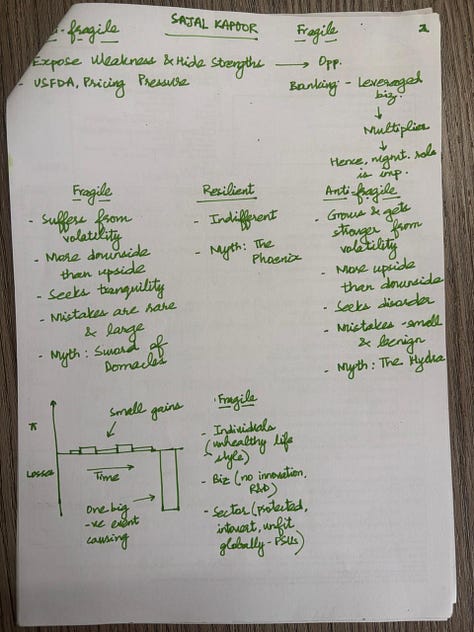 -fragile
SAJAL KAPOOR
Fragile
Expose Weakness & Hide Strengths → Opp.
- USFDA, Pricing Pressure
Banking - Leveraged
biz.
↓
Multiplier
↓
Hence, mgmt. role
is imp.
Fragile
- Suffers from
volatility
- More downside
than upside
- Seeks tranquility
- Mistakes are rare
& large
- Myth: Sword of
Domacles
Resilient
- Indifferent
- Myth: The
Phoenix
Anti-fragile
- Grows & gets
stronger from
volatility
- More upside
than downside
- Seeks disorder
- Mistakes - small
& benign
- Myth: The Hydra
π
Losses
Small gains
Time
One big
-ve event
causing
Fragile
- Individuals
(unhealthy life
style)
- Biz (no innovation,
R&D)
- Sector (protected,
interest, unfit
globally - PSUs)